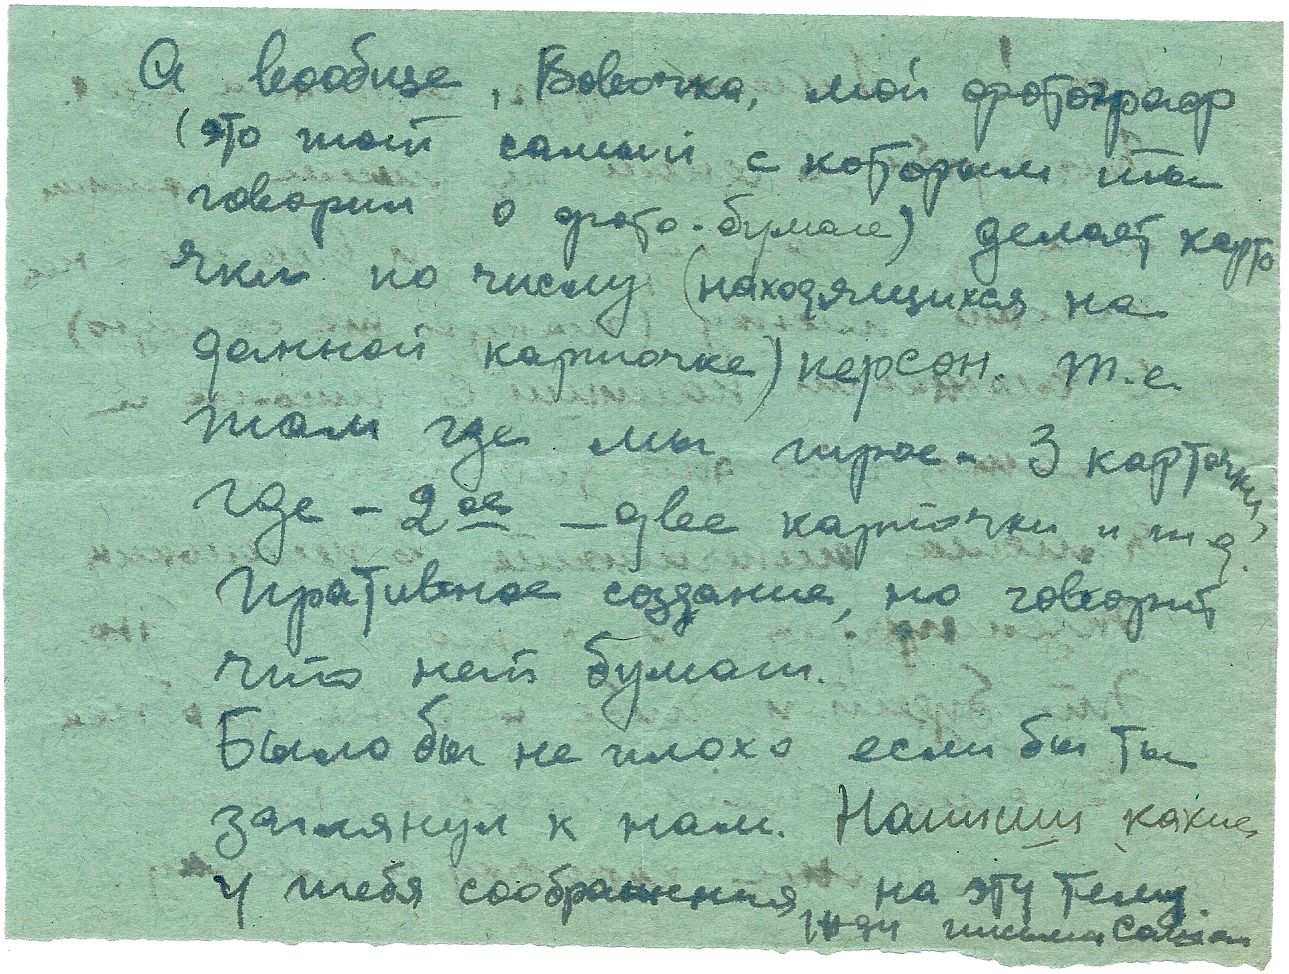 А вообще, Вовочка, мой фотограф
(это тот самый с которым ты
говорил о фото-бумаге) делает карто
чки по числу (находящихся на
данной карточке) персон. т.е.
там где мы трое - 3 карточки,
где - 2ое - две карточки и т.д.
Пративное создание, но говорит
что нет бумаги.
Было бы не плохо если бы ты
заглянул к нам. Напиши какие
у тебя соображения на эту тему.
Жди письма Саши